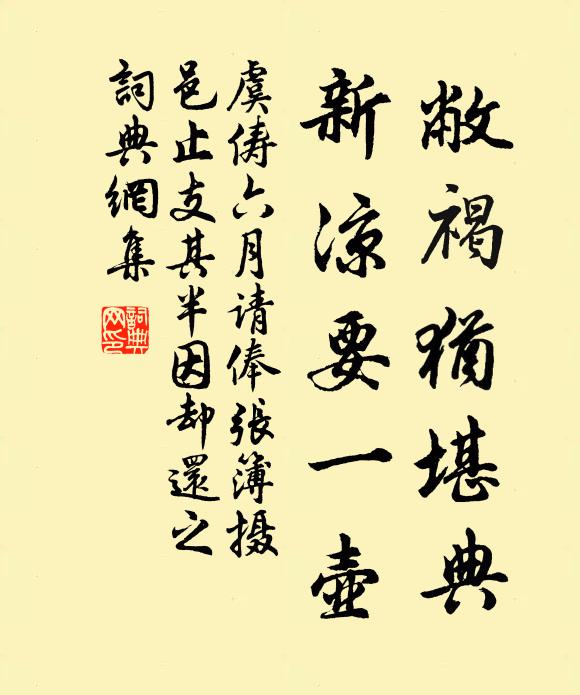 敝褐猶堪典
新凉要一壺
虞儔六月请俸張簿摄
邑止支其半因却還之
詞典網集
詞典
网印